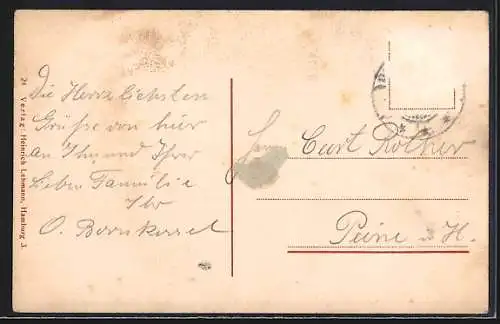 Die Herzlichsten
Grüße von hier
an Ihn und Ihrer
Lieben Familie
Ihr
O. Bornkessel
Herrn Curt Rother
Peine u. H.
24 Verlag: Heinrich Lehmann, Hamburg 3.